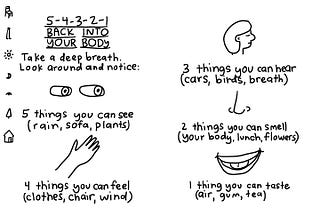 5-4-3-2-1
BACK INTO
YOUR BODY
Take a deep breath.
Look around and notice:
5 things you can see
(rain, sofa, plants)
4 things you can feel
(clothes, chair, wind)
3 things you can hear
(cars, birds, breath)
2 things you can smell
(your body, lunch, flowers)
1 thing you can taste
(air, gum, tea)